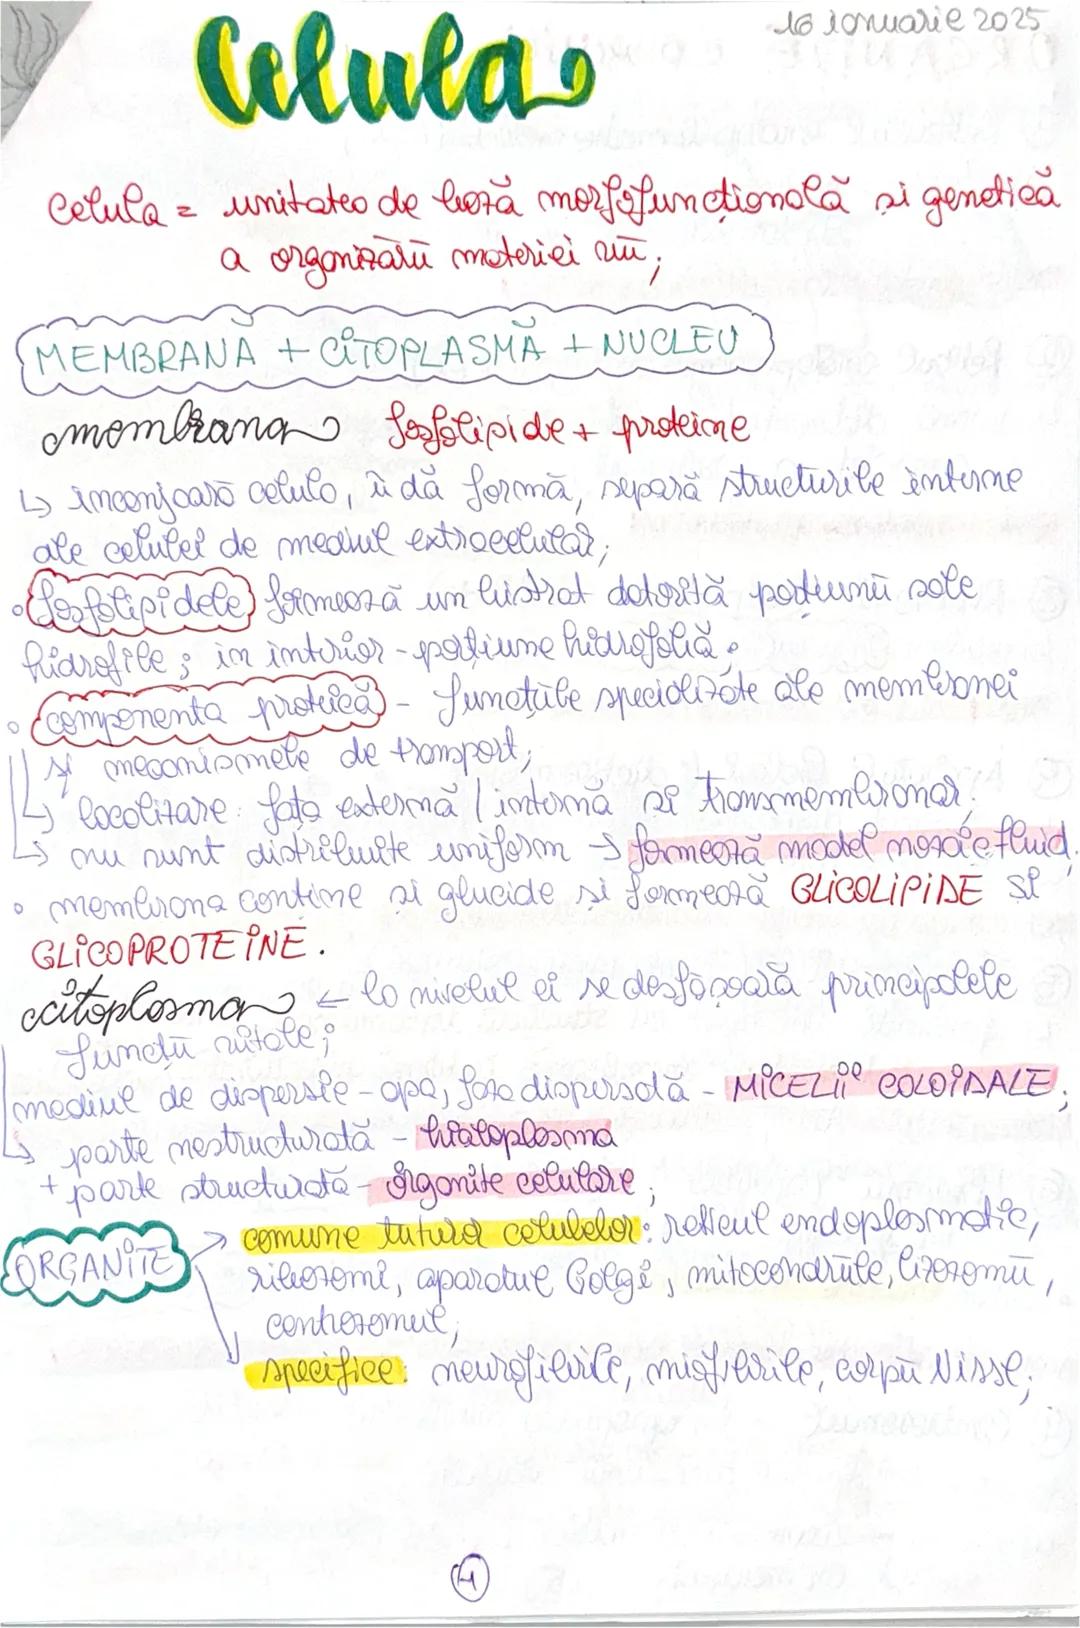 16 ianuarie 2025
Celula
Celula = unitatea de bază morfofuncțională si genetică
a organizării materiei vii;
MEMBRANĂ + CITOPLASMĂ + NUCLEU
membrana fosfolipide + proteine
↳ inconjoară celula, îi dă formă, separă structurile interne
ale celulei de mediul extracelular;
• fosfolipidele formează un bistrat datorită porțiunii sale
hidrofile; in interior - porțiune hidrofobă;
• componenta proteică - funcțiile specializate ale membranei
și mecanismele de transport;
↳ localizare: fața externă / internă si transmembranar.
↳ nu sunt distribuite uniform → formează model mozaic fluid.
• membrana contine si glucide si formează GLICOLIPIDE SI
GLICOPROTEINE.
citoplasma ← la nivelul ei se desfășoară principalele
funcții vitale;
mediul de dispersie - apa, faza dispersată - MICELII COLOIDALE;
↳ parte nestructurată - hialoplasma
+ parte structurată - organite celulare;
ORGANITE → comune tuturor celulelor: reticul endoplasmatic,
ribozomi, aparatul Golgi, mitocondriile, lizozomii,
centrozomul;
specifice: neurofibrile, miofibrile, corpii Nissl;
4